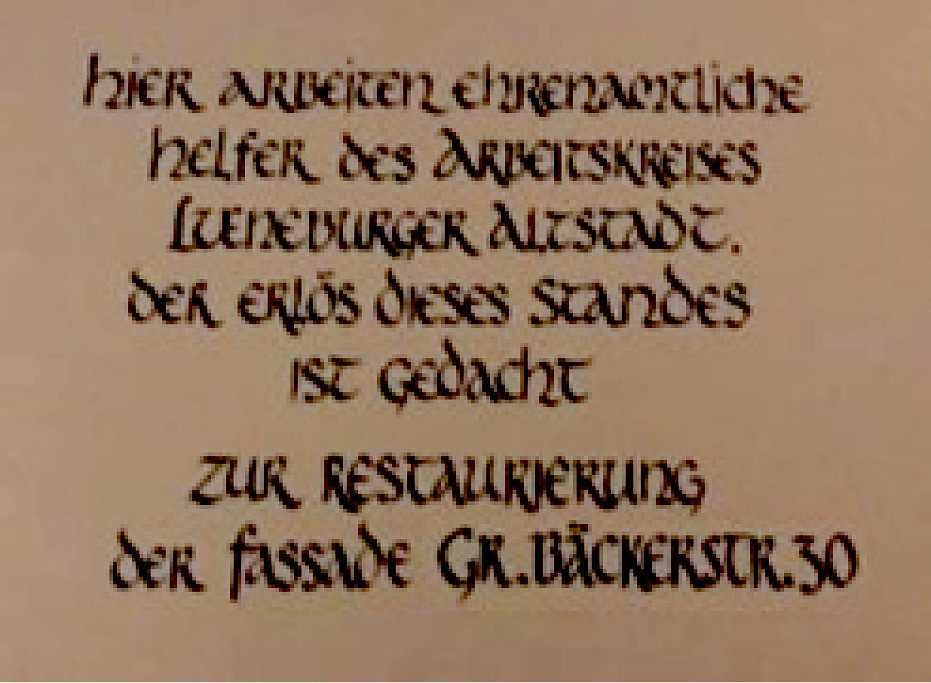 hier arbeiten ehrenamtliche
helfer des Arbeitskreises
Lueneburger Altstadt.
der erlös dieses Standes
ist gedacht
zur restaurierung
der fassade Gr. Bäckerstr. 30